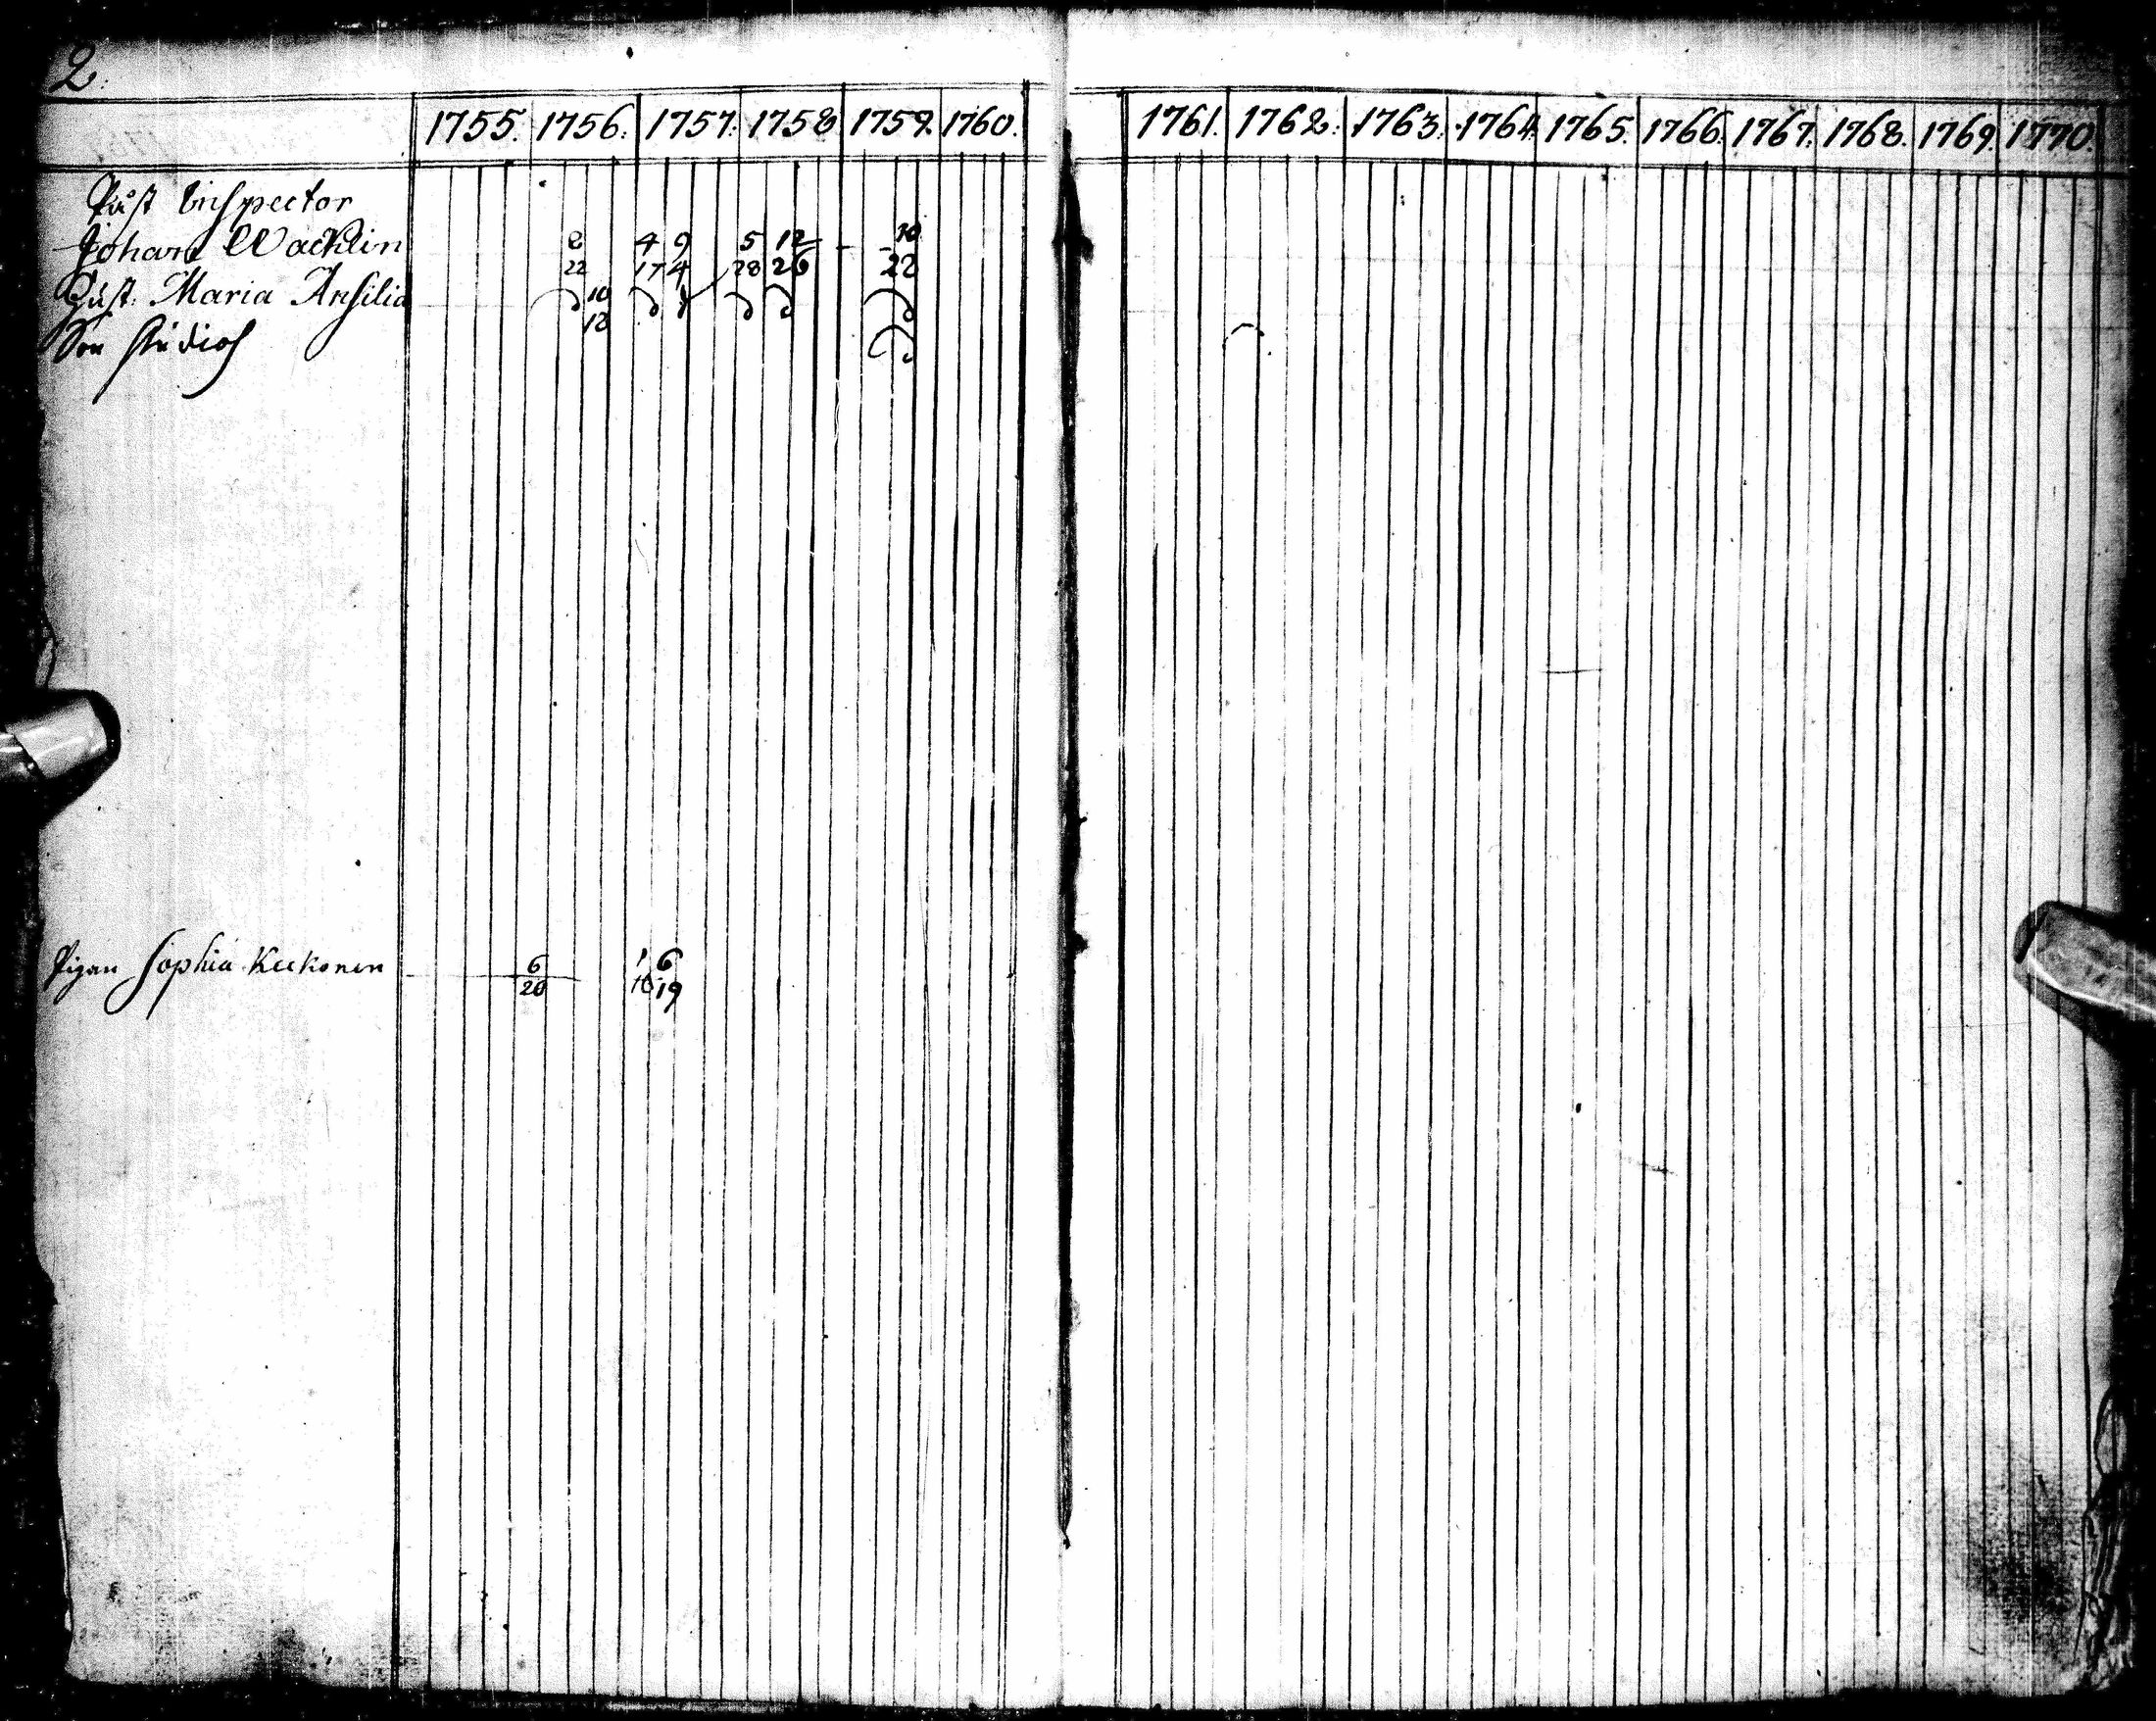 2.
1755. 1756. 1757. 1758 1759. 1760. 1761. 1762. 1763. 1764. 1765. 1766. 1767. 1768. 1769. 1770.
Påst Inspector
Johan Wacklin 8 4 9 5 12 10
22 17 4 28 26 22
Hust. Maria Ansilia 10
12
Son
Pigan Sophia Keckonen 6 1 6
20 16 19